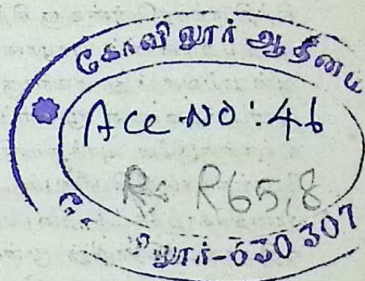 கோவிலூர் ஆதீனம்
Acc No: 46
R65,8
லூர்-630307